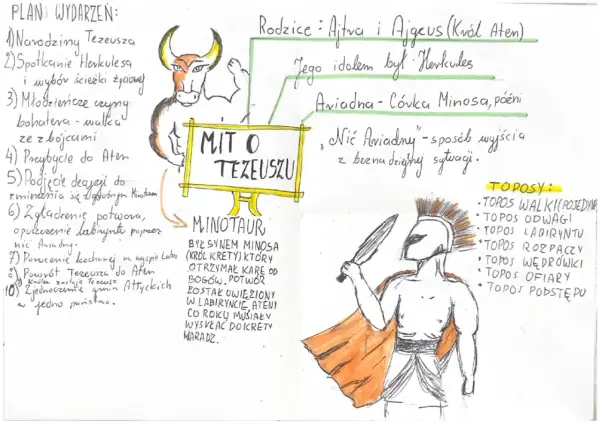 PLAN WYDARZEŃ:
1) Narodziny Tezeusza
2) Spotkanie Herkulesa
i wybór ścieżki życiowej
3) Młodzieńcze czyny
bohatera - walka
ze zbójcami
4) Przybycie do Aten
5) Podjęcie decyzji do
zmierzenia się z groźnym Minotaurem
6) Zgładzenie potwora,
opuszczenie labiryntu poprzez
nić Ariadny.
7) Porzucenie kochanej na wyspie
8) Powrót Tezeusza do Aten
9) królem zostaje Tezeusz
10) Zjednoczenie gmin Attyckich
w jedno państwo.
Rodzice: Ajtra i Ajgeus (Król Aten)
Jego idolem był Herkules
Ariadna - Córka Minosa, późni
"Nić Ariadny" - sposób wyjścia
z beznadziejnej sytuacji.
MIT O
TEZEUSZU
MINOTAUR
BYŁ SYNEM MINOSA
(KRÓL KRETY) KTÓRY
OTRZYMAŁ KARĘ OD
BOGÓW. POTWÓR
ZOSTAŁ UWIĘZIONY
W LABIRYNCIE, ATENI
CO ROKU MUSIAŁY
WYSYŁAĆ DO KRETY
HARADZ.
TOPOSY:
• TOPOS WALKI (POJEDYNK
• TOPOS ODWAGI
• TOPOS LABIRYNTU
• TOPOS ROZPACZY
• TOPOS WĘDRÓWKI
• TOPOS OFIARY
• TOPOS PODSTĘPU